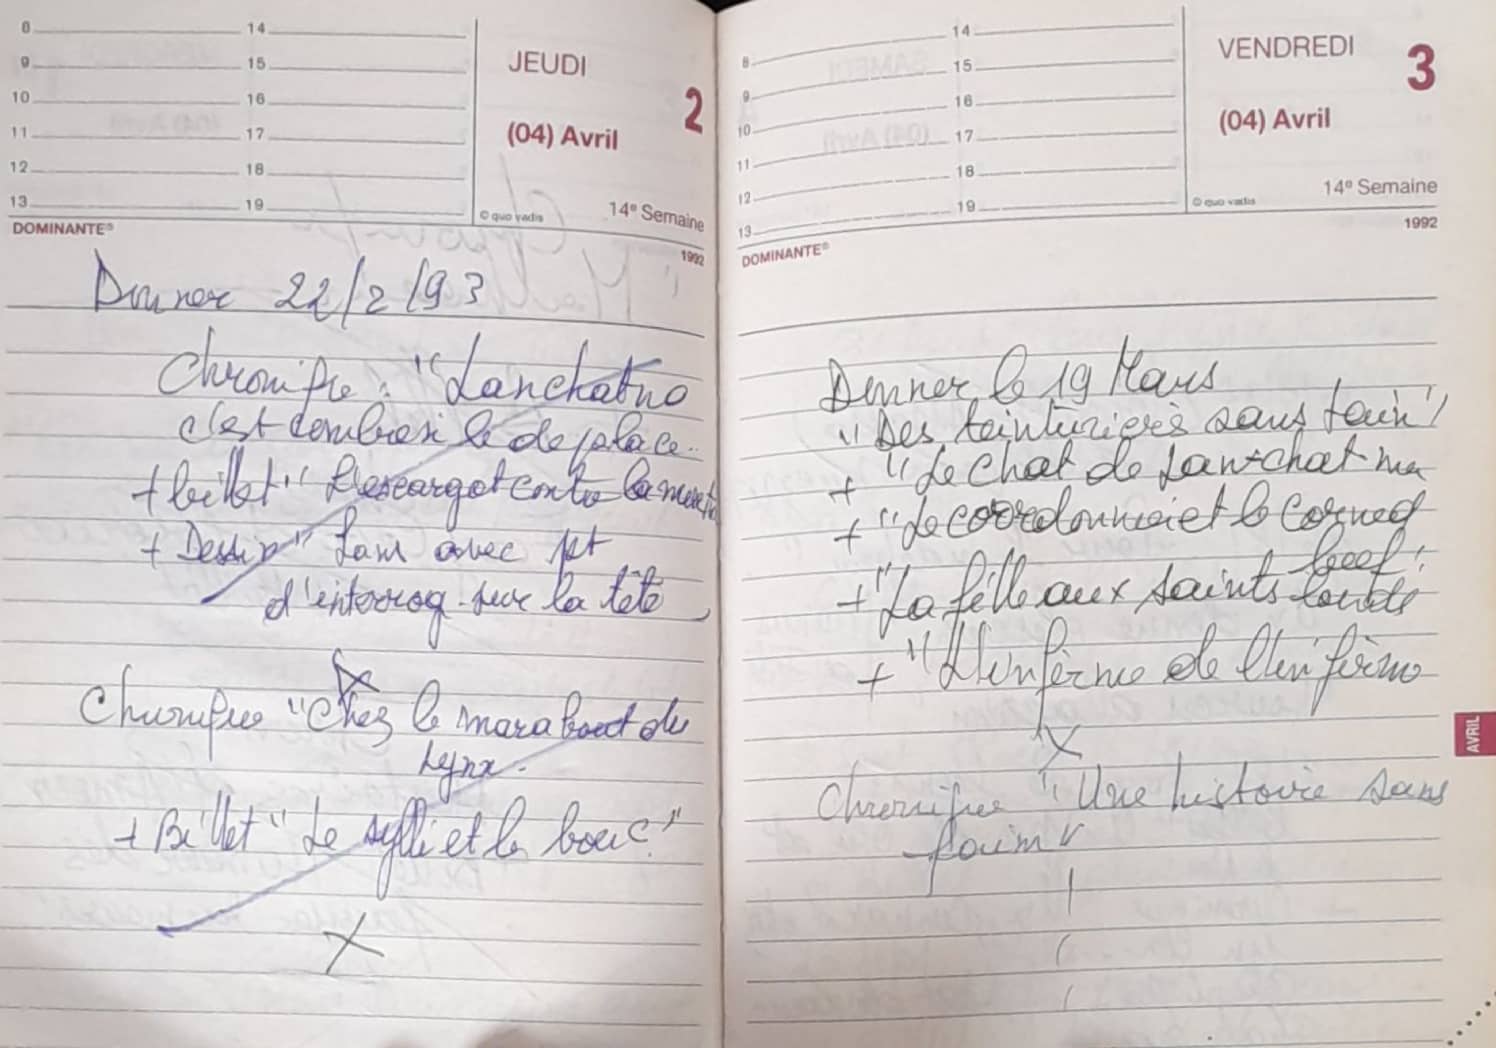 8 14
9 15
10 16
11 17
12 18
13 19
JEUDI
2
(04) Avril
© quo vadis
14e Semaine
DOMINANTE®
1992
Donner 22/2/93
Chronique : "Lanchatno
c'est combien le deplace..
+ billet "L'escargot contre
+ Dessin" Lam avec pt
d'interrog. sur la tête
X
Chronique "Chez le marabout du
Lynx.
+ Billet "Le sylli et le bouc"
X
8 14
9 15
10 16
11 17
12 18
13 19
VENDREDI
3
(04) Avril
14e Semaine
© quo vadis
DOMINANTE®
1992
Donner le 19 Mars
"Des teinturiers sans
+ "Le chat de
+ "Le coordonnier et le corned
beef"
+ "La fille aux saints
+ "L'infirme de l'infirme
X
Chronique "Une histoire sans
faim"
AVRIL